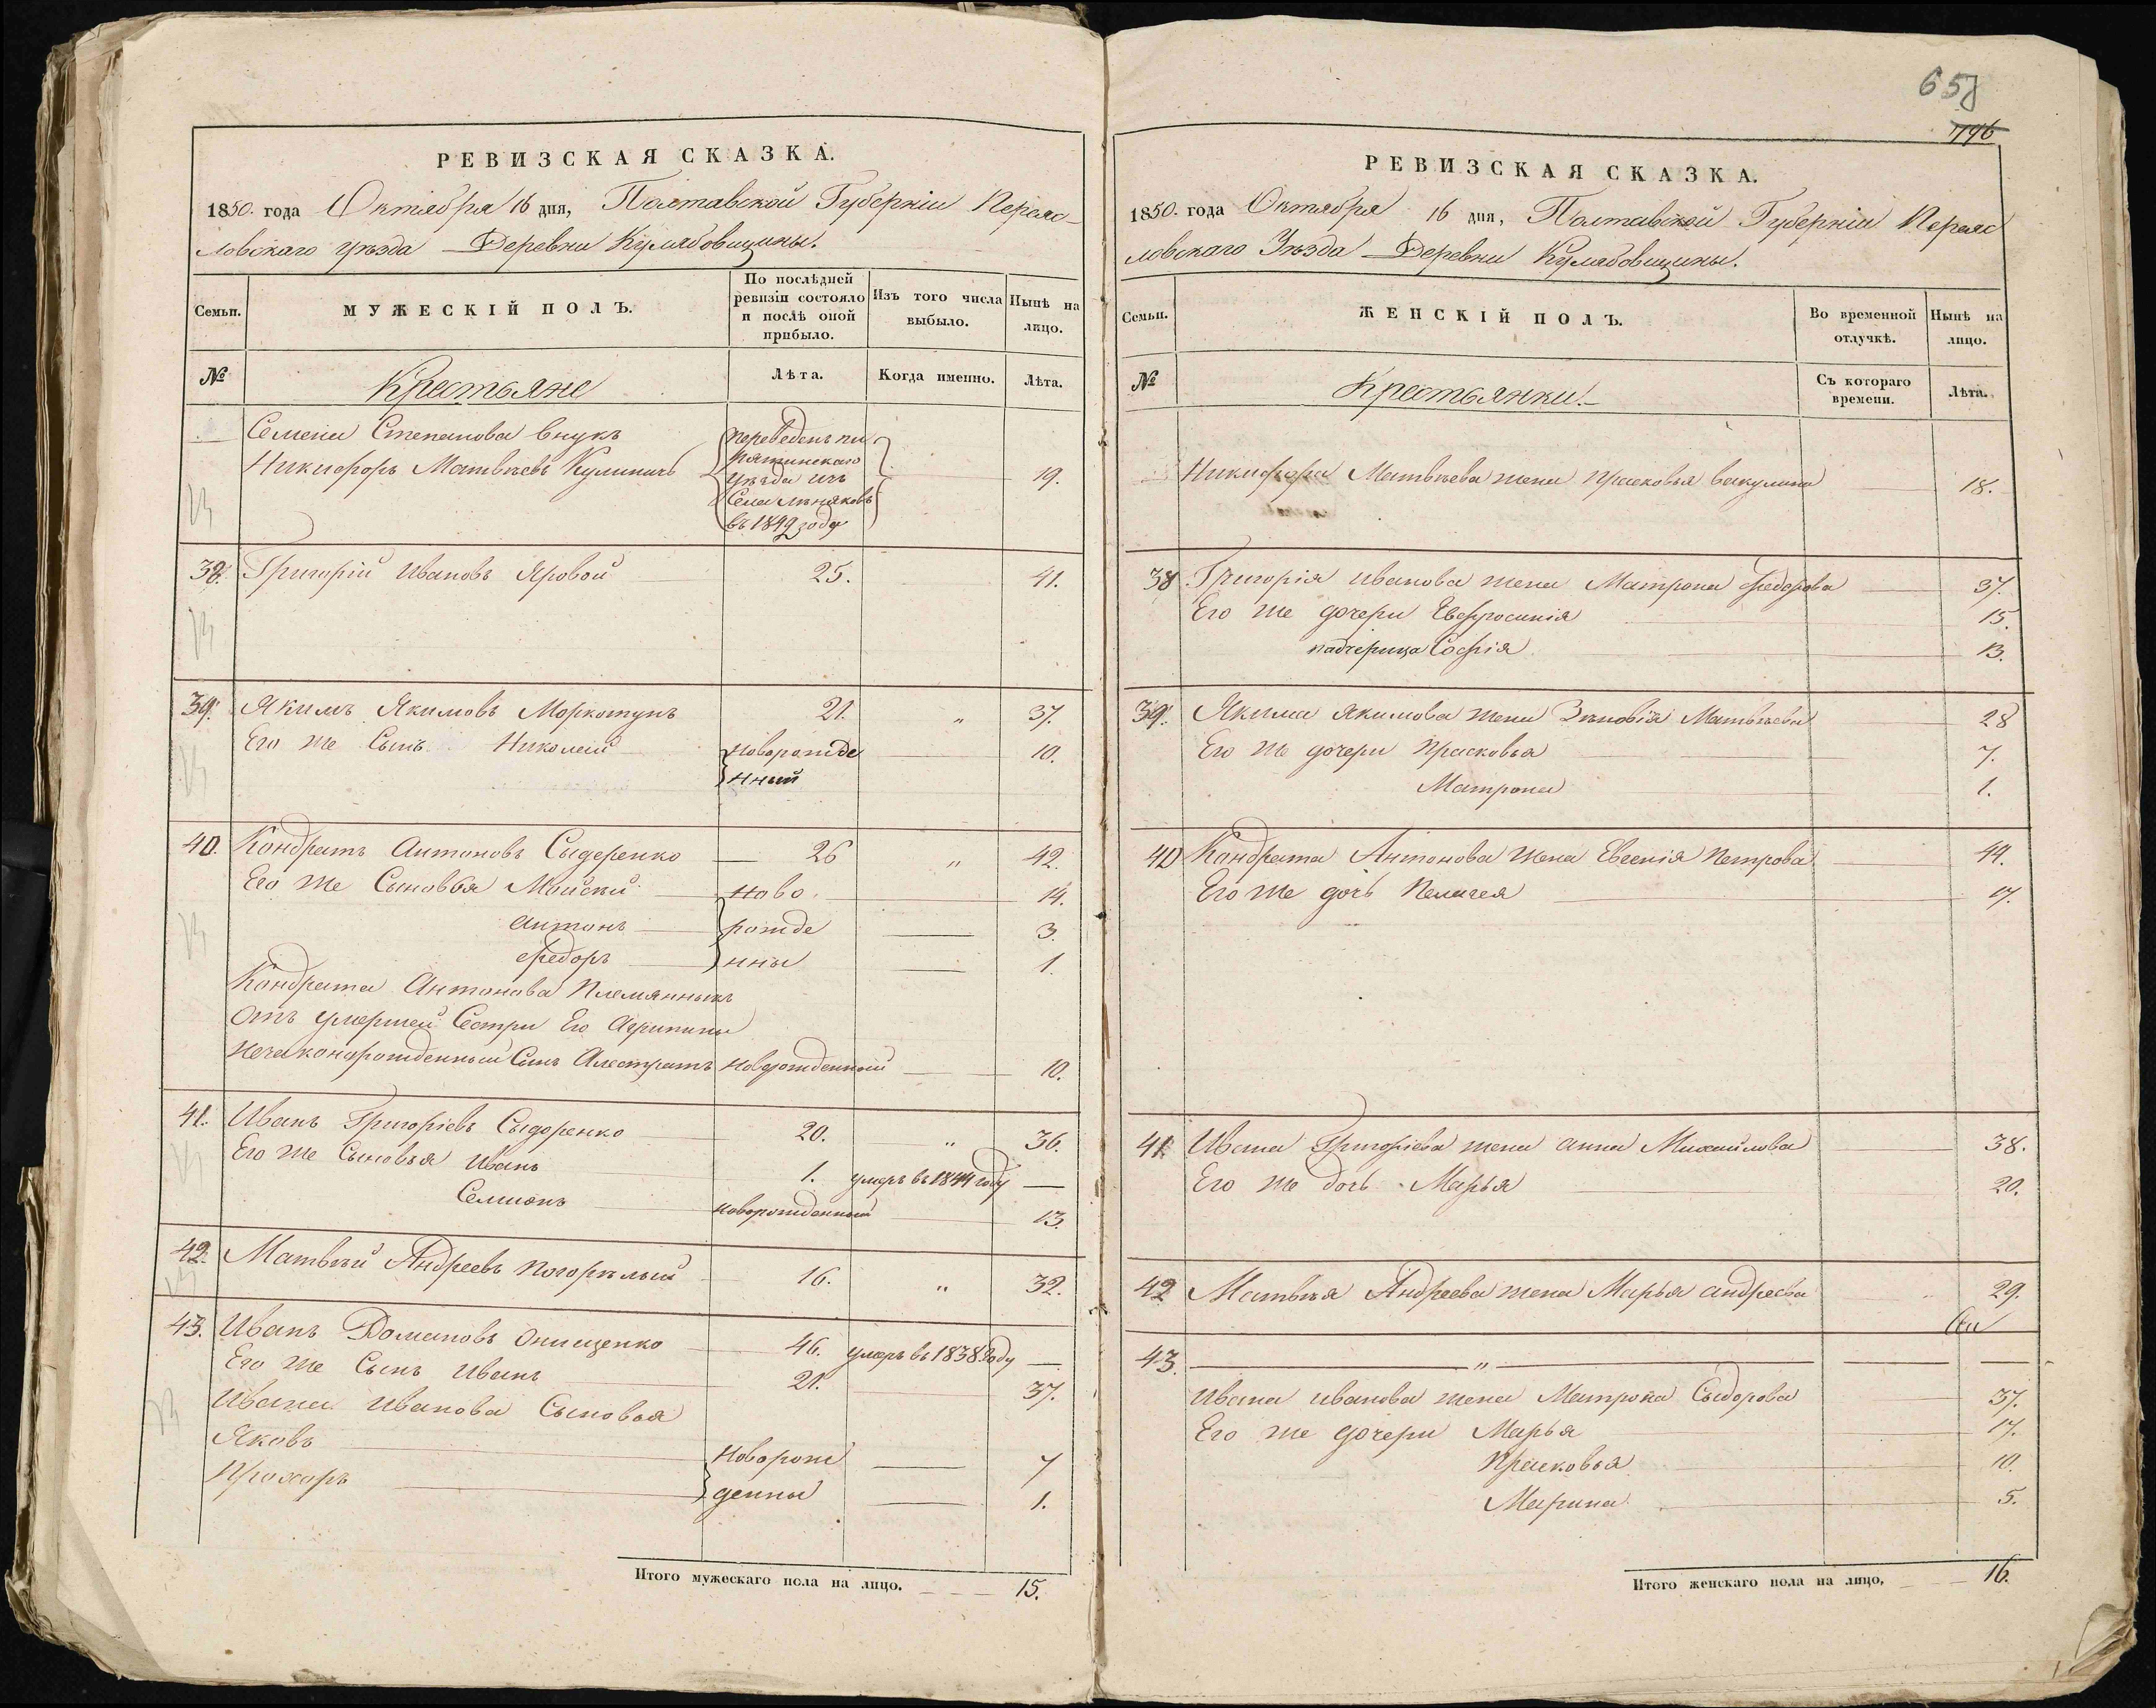 РЕВИЗСКАЯ СКАЗКА.
1850. года Октября 16 дня, Полтавской Губерніи Переяс-
ловскаго уѣзда Деревни Кулябовщины.
Семьи.
МУЖЕСКІЙ ПОЛЪ.
По послѣдней ревизіи состояло и послѣ оной прибыло.
Изъ того числа выбыло.
Нынѣ на лицо.
№
Крестьяне
Лѣта.
Когда именно.
Лѣта.
Семена Степанова внукъ
Никифоръ Матвѣевъ Кулиничъ 19.
переведенъ
пирятинскаго
уѣзда изъ
Села
въ 1849 году
38. Григорій Ивановъ Яровой 25. 41.
39. Якимъ Якимовъ Моркотунъ 21. " 37.
Его же Сынъ Николай новорожде 10.
нный
40. Кондратъ Антоновъ Сыдеренко 26 " 42.
Его же Сыновья Мойсей ново 14.
Антонъ рожде 3.
Федоръ нны 1.
Кондрата Антонова Племянныкъ
отъ умершей Сестри Его Агрипины
Незаконорожденный Сынъ новорожденный 10.
41. Иванъ Григоріевъ Сыдоренко 20. " 36.
Его же Сыновья Иванъ 1. умеръ въ 1844 году —
Семионъ новорожденный 13.
42. Матвѣй Андреевъ Погорѣлый 16. " 32.
43. Иванъ Домановъ Онищенко 46. умеръ въ 1838 году —
Его же Сынъ Иванъ 21. 37.
Ивана Иванова Сыновья
Яковъ новорож 7
Прохоръ денны 1.
Итого мужескаго пола на лицо. 15.
657
796
РЕВИЗСКАЯ СКАЗКА.
1850. года Октября 16 дня, Полтавской Губерніи Переяс
ловскаго Уѣзда Деревни Кулябовщины.
Семьи.
ЖЕНСКІЙ ПОЛЪ.
Во временной отлучкѣ.
Нынѣ на лицо.
№
Крестьянки.
Съ котораго времени.
Лѣта.
Никифора Матвѣева жена Прасковья Вакулина 18.
38 Григорія Иванова жена Матрона Федорова 37.
Его же дочери Евфросинія 15.
падчерица Софія 13.
39. Якима Якимова жена Зѣновія Матвѣева 28
Его же дочери Прасковья 7.
Матрона 1.
40 Кондрата Антонова жена Евгенія Петрова 44.
Его же дочь Пелагея 17.
41 Ивана Григоріева жена Анна Михайлова 38.
Его же дочь Марья 20.
42 Матвѣя Андреева жена Марья Андреева 29.
43. — " —
Ивана Иванова жена Матрона Сыдорова 37.
Его же дочери Марья 17.
Прасковья 10.
Марина 5.
Итого женскаго пола на лицо, 16.